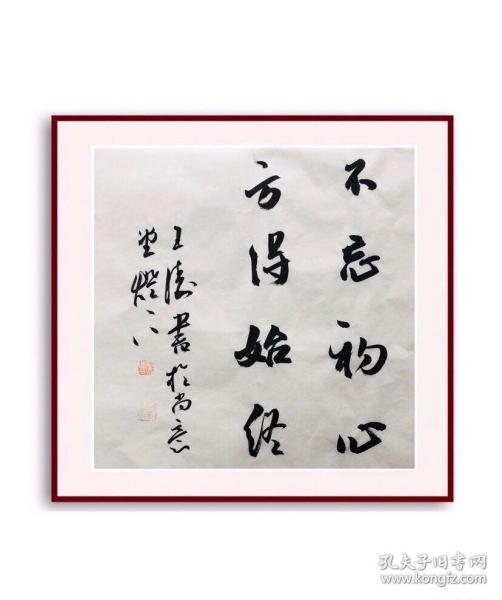 不忘初心
方得始终
王涛书于尚意
堂灯下
孔夫子旧书网
www.kongfz.com